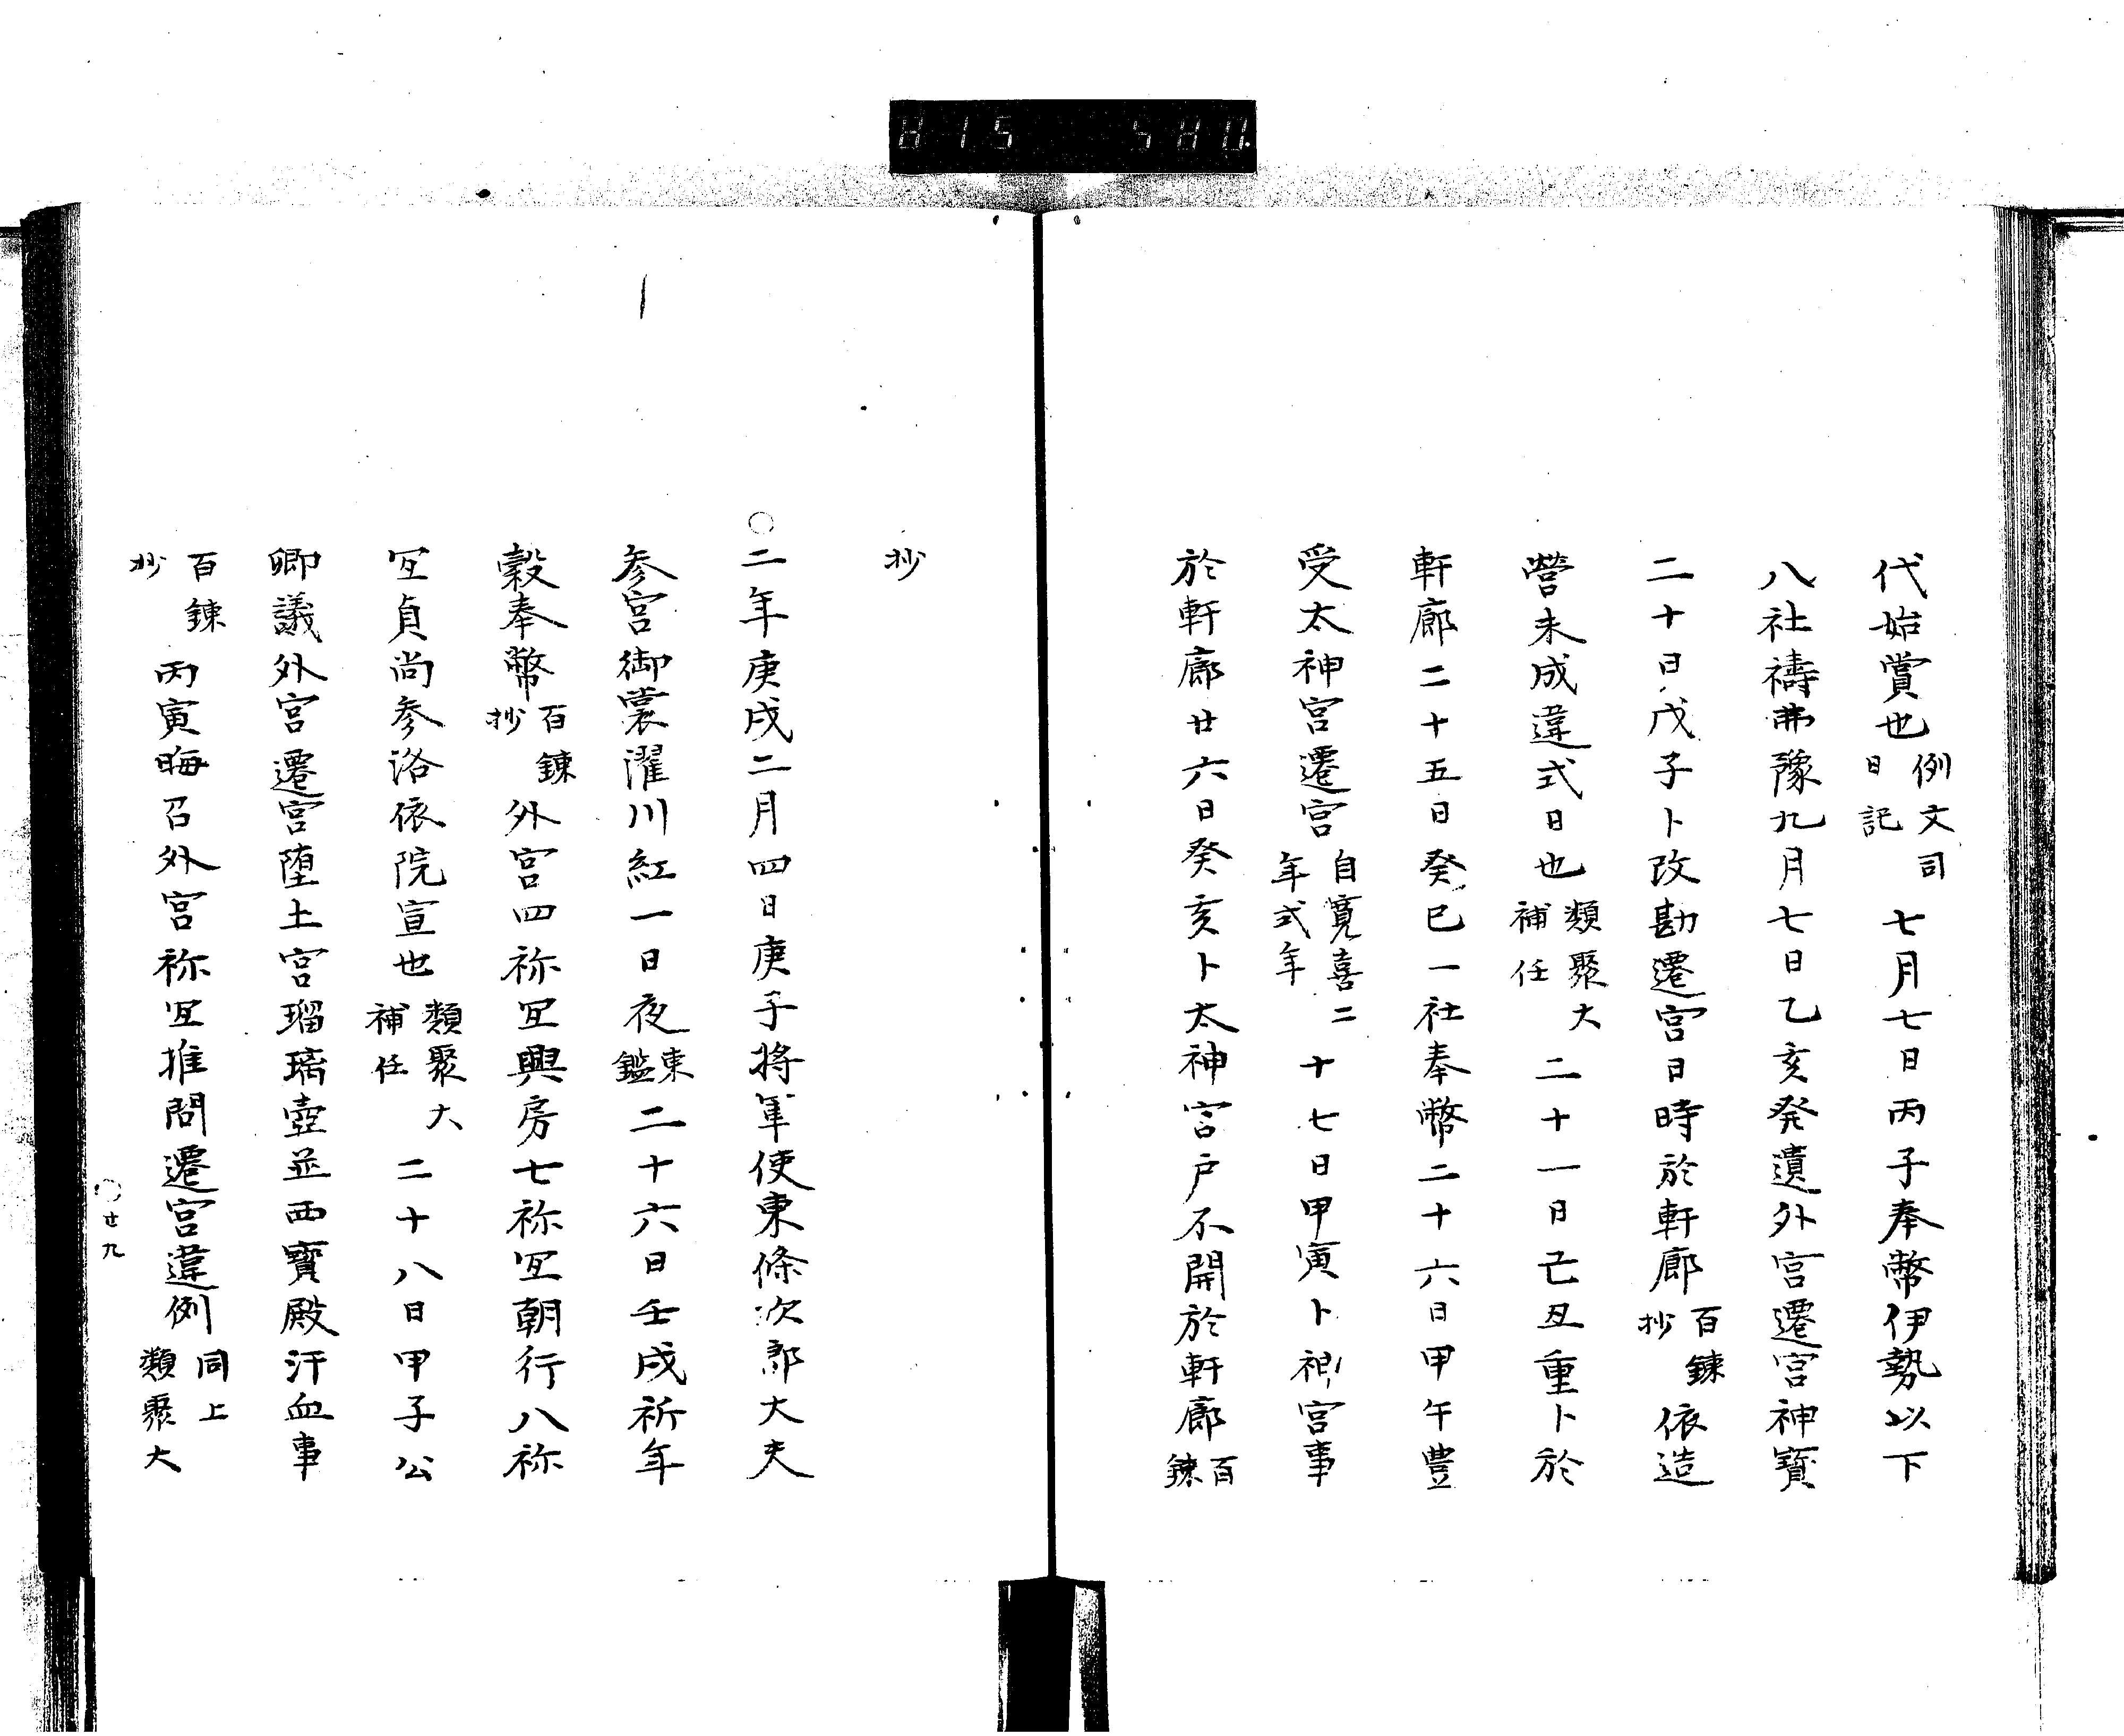 815 580.
代始賞也例文司日記七月七日丙子奉幣伊勢以下
八社禱弗豫九月七日乙亥発遺外宮遷宮神寶
二十日戊子卜改勘遷宮日時於軒廊百鍊抄依造
營未成違式日也類聚大補任二十一日己丑重卜於
軒廊二十五日癸巳一社奉幣二十六日甲午豊
受太神宮遷宮自寛喜二年式年十七日甲寅卜神宮事
於軒廊廿六日癸亥卜太神宮戸不開於軒廊百鍊
抄
〇二年庚戌二月四日庚子将軍使東條次郎大夫
参宮御裳濯川紅一日夜東鑑二十六日壬戌祈年
穀奉幣百鍊抄外宮四祢冝興房七祢冝朝行八祢
冝貞尚参洛依院宣也類聚大補任二十八日甲子公
卿議外宮遷宮堕土宮瑠璃壺並西寶殿汗血事
百鍊抄丙寅晦召外宮祢冝推問遷宮違例同上類聚大
〇廿九